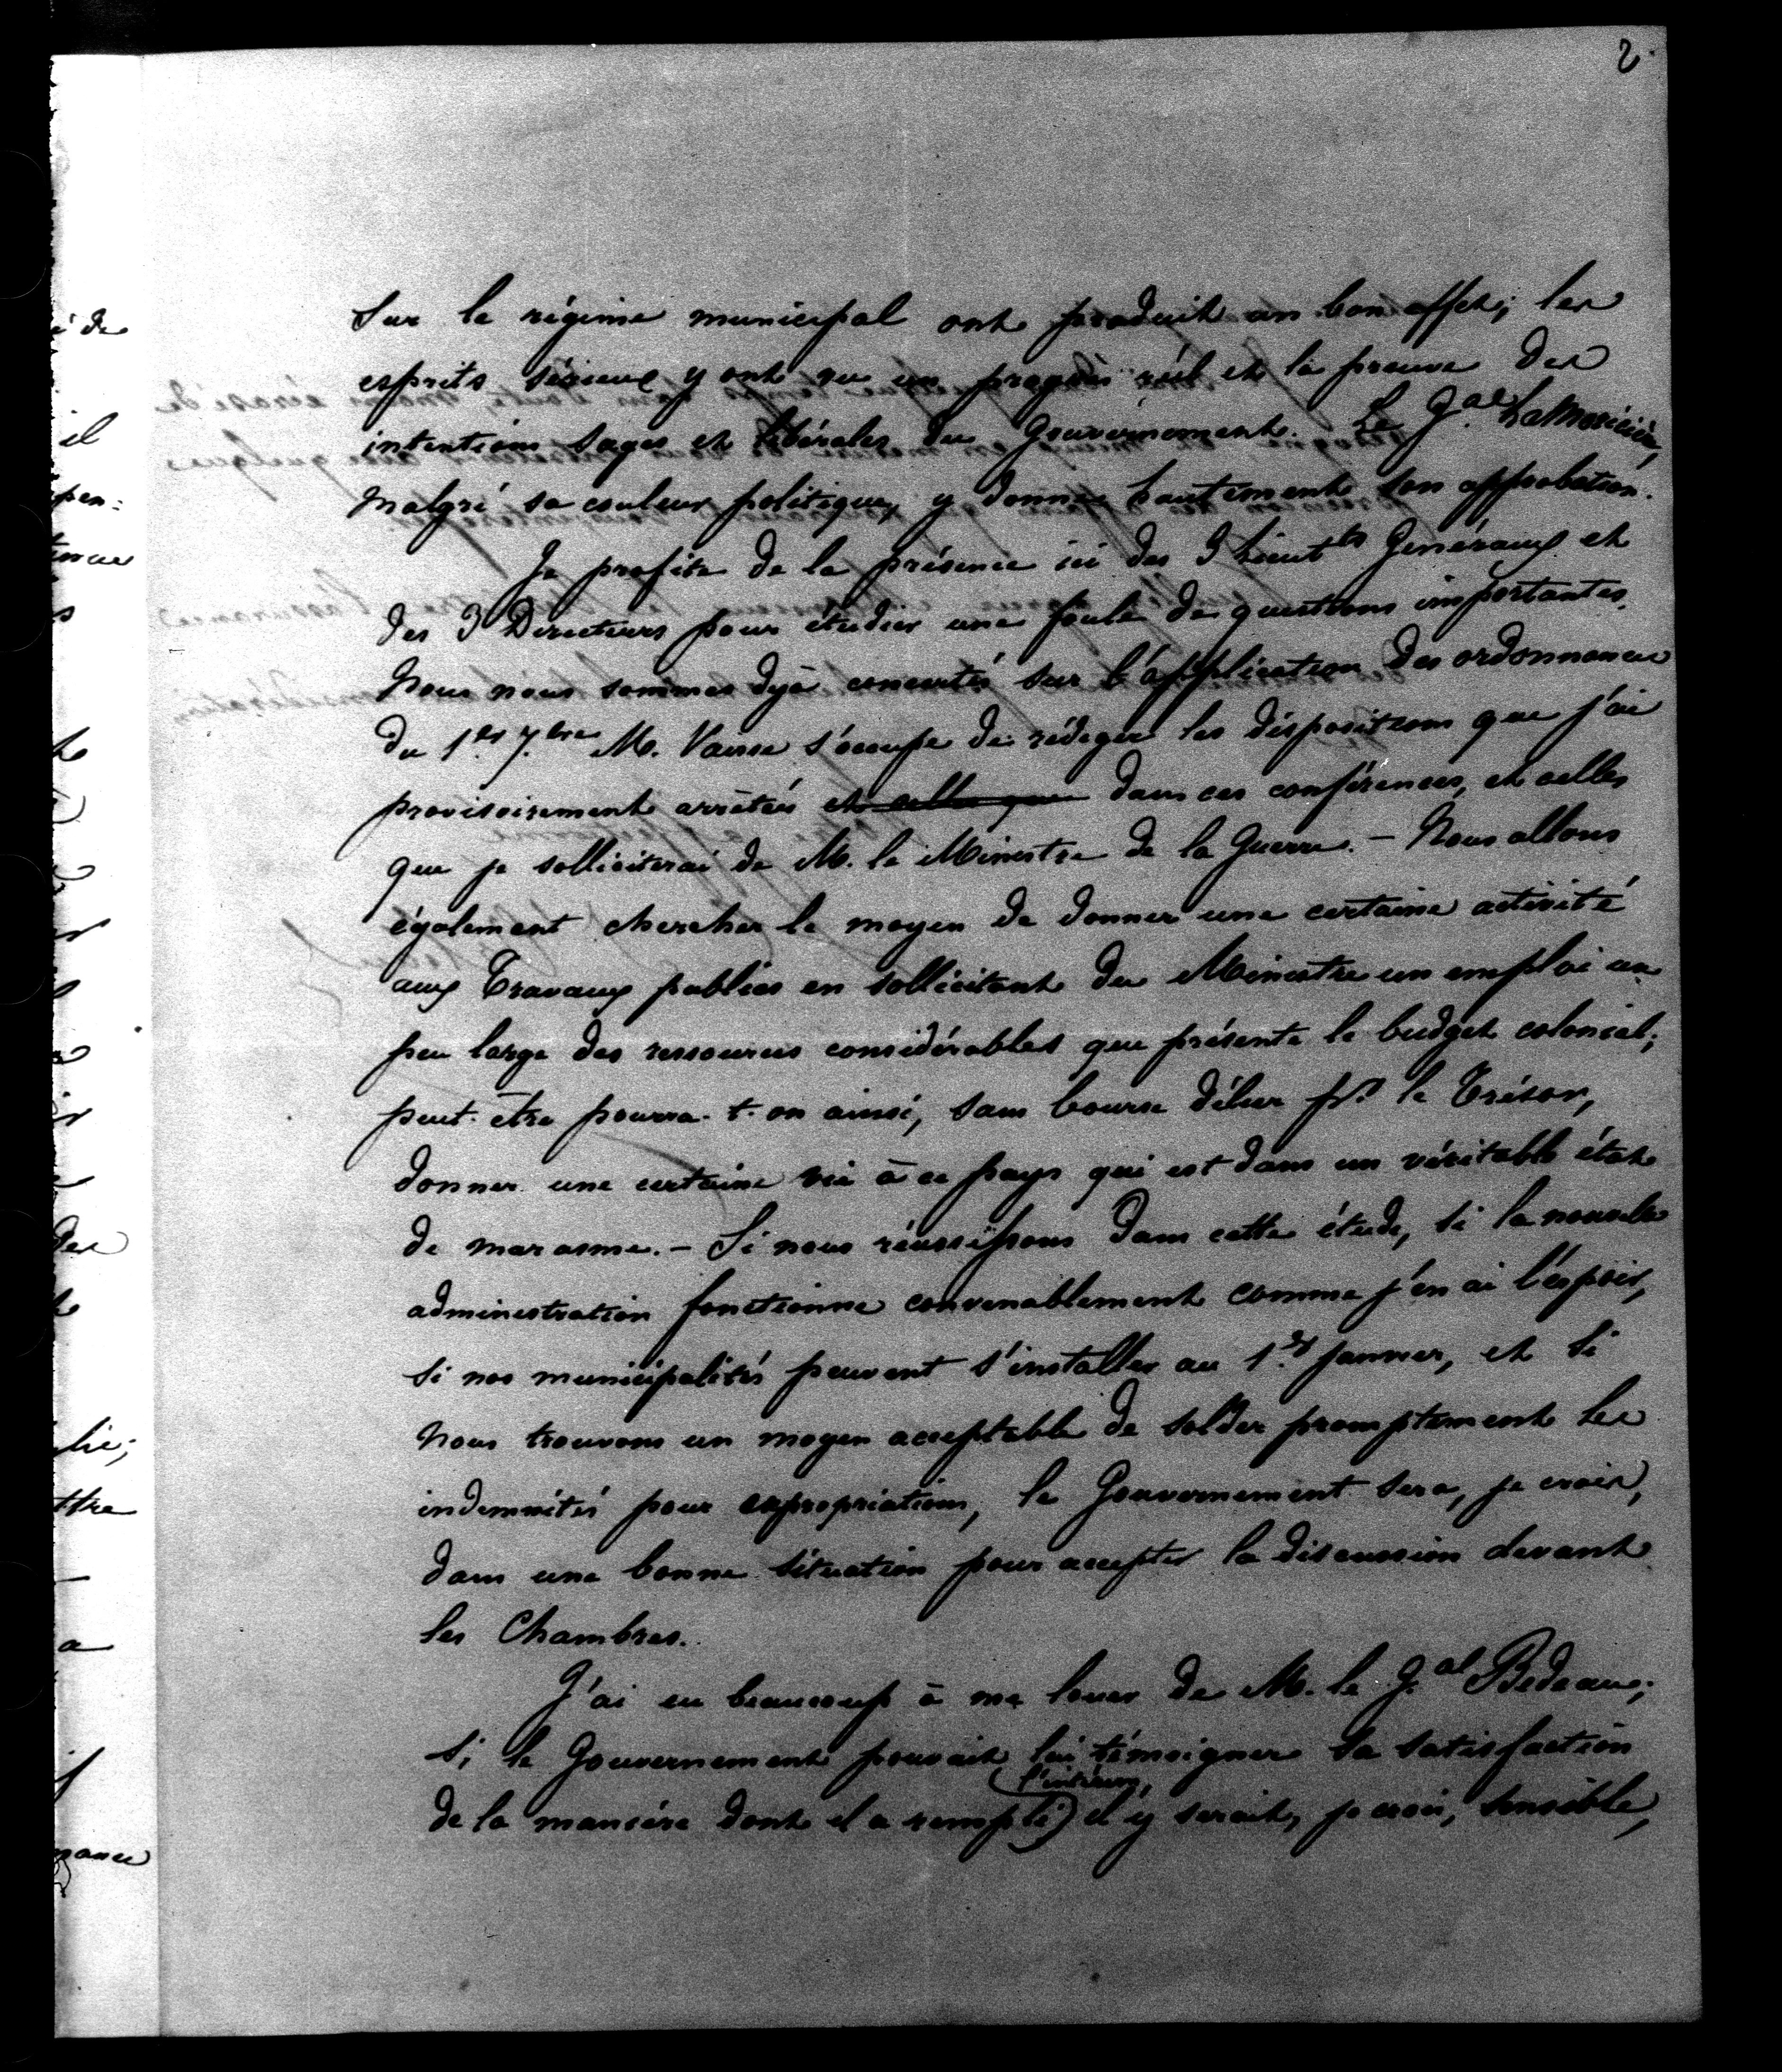 2.
Sur le régime municipal ont produit un bon effet; les
esprits sérieux y ont vu un progrès réel et la preuve des
intentions sages et libérales du Gouvernement. Le Gal. LaMoricière,
malgré sa couleur politique, y donne hautement son approbation.
Je profite de la présence ici des 3 Lieutts Généraux et
des 3 Directeurs pour étudier une foule de questions importantes.
Nous nous sommes déjà concertés sur l'application des ordonnances
du 1er 7.bre M. Vaisse s'occupe de rédiger les dispositions que j'ai
provisoirement arrêtées et celles que dans ces conférences, et celles
que je solliciterai de M. le Ministre de la Guerre. – Nous allons
également chercher le moyen de donner une certaine activité
aux Travaux publics en sollicitant du Ministre un emploi un
peu large des ressources considérables que présente le budget colonial;
peut-être pourra-t-on ainsi, sans bourse délier pr. le Trésor,
donner une certaine vie à ce pays qui est dans un véritable état
de marasme. – Si nous réussissons dans cette étude, si la nouvelle
administration fonctionne convenablement comme j'en ai l'espoir,
si nos municipalités peuvent s'installer au 1.er janvier, et si
nous trouvons un moyen acceptable de solder promptement les
indemnités pour expropriations, le Gouvernement sera, je crois,
dans une bonne situation pour accepter la discussion devant
les Chambres.
J'ai eu beaucoup à me louer de M. le G.al Bedeau;
si le Gouvernement pouvait lui témoigner sa satisfaction
l'intérim,
de la manière dont il a rempli il y serait, je crois, sensible,